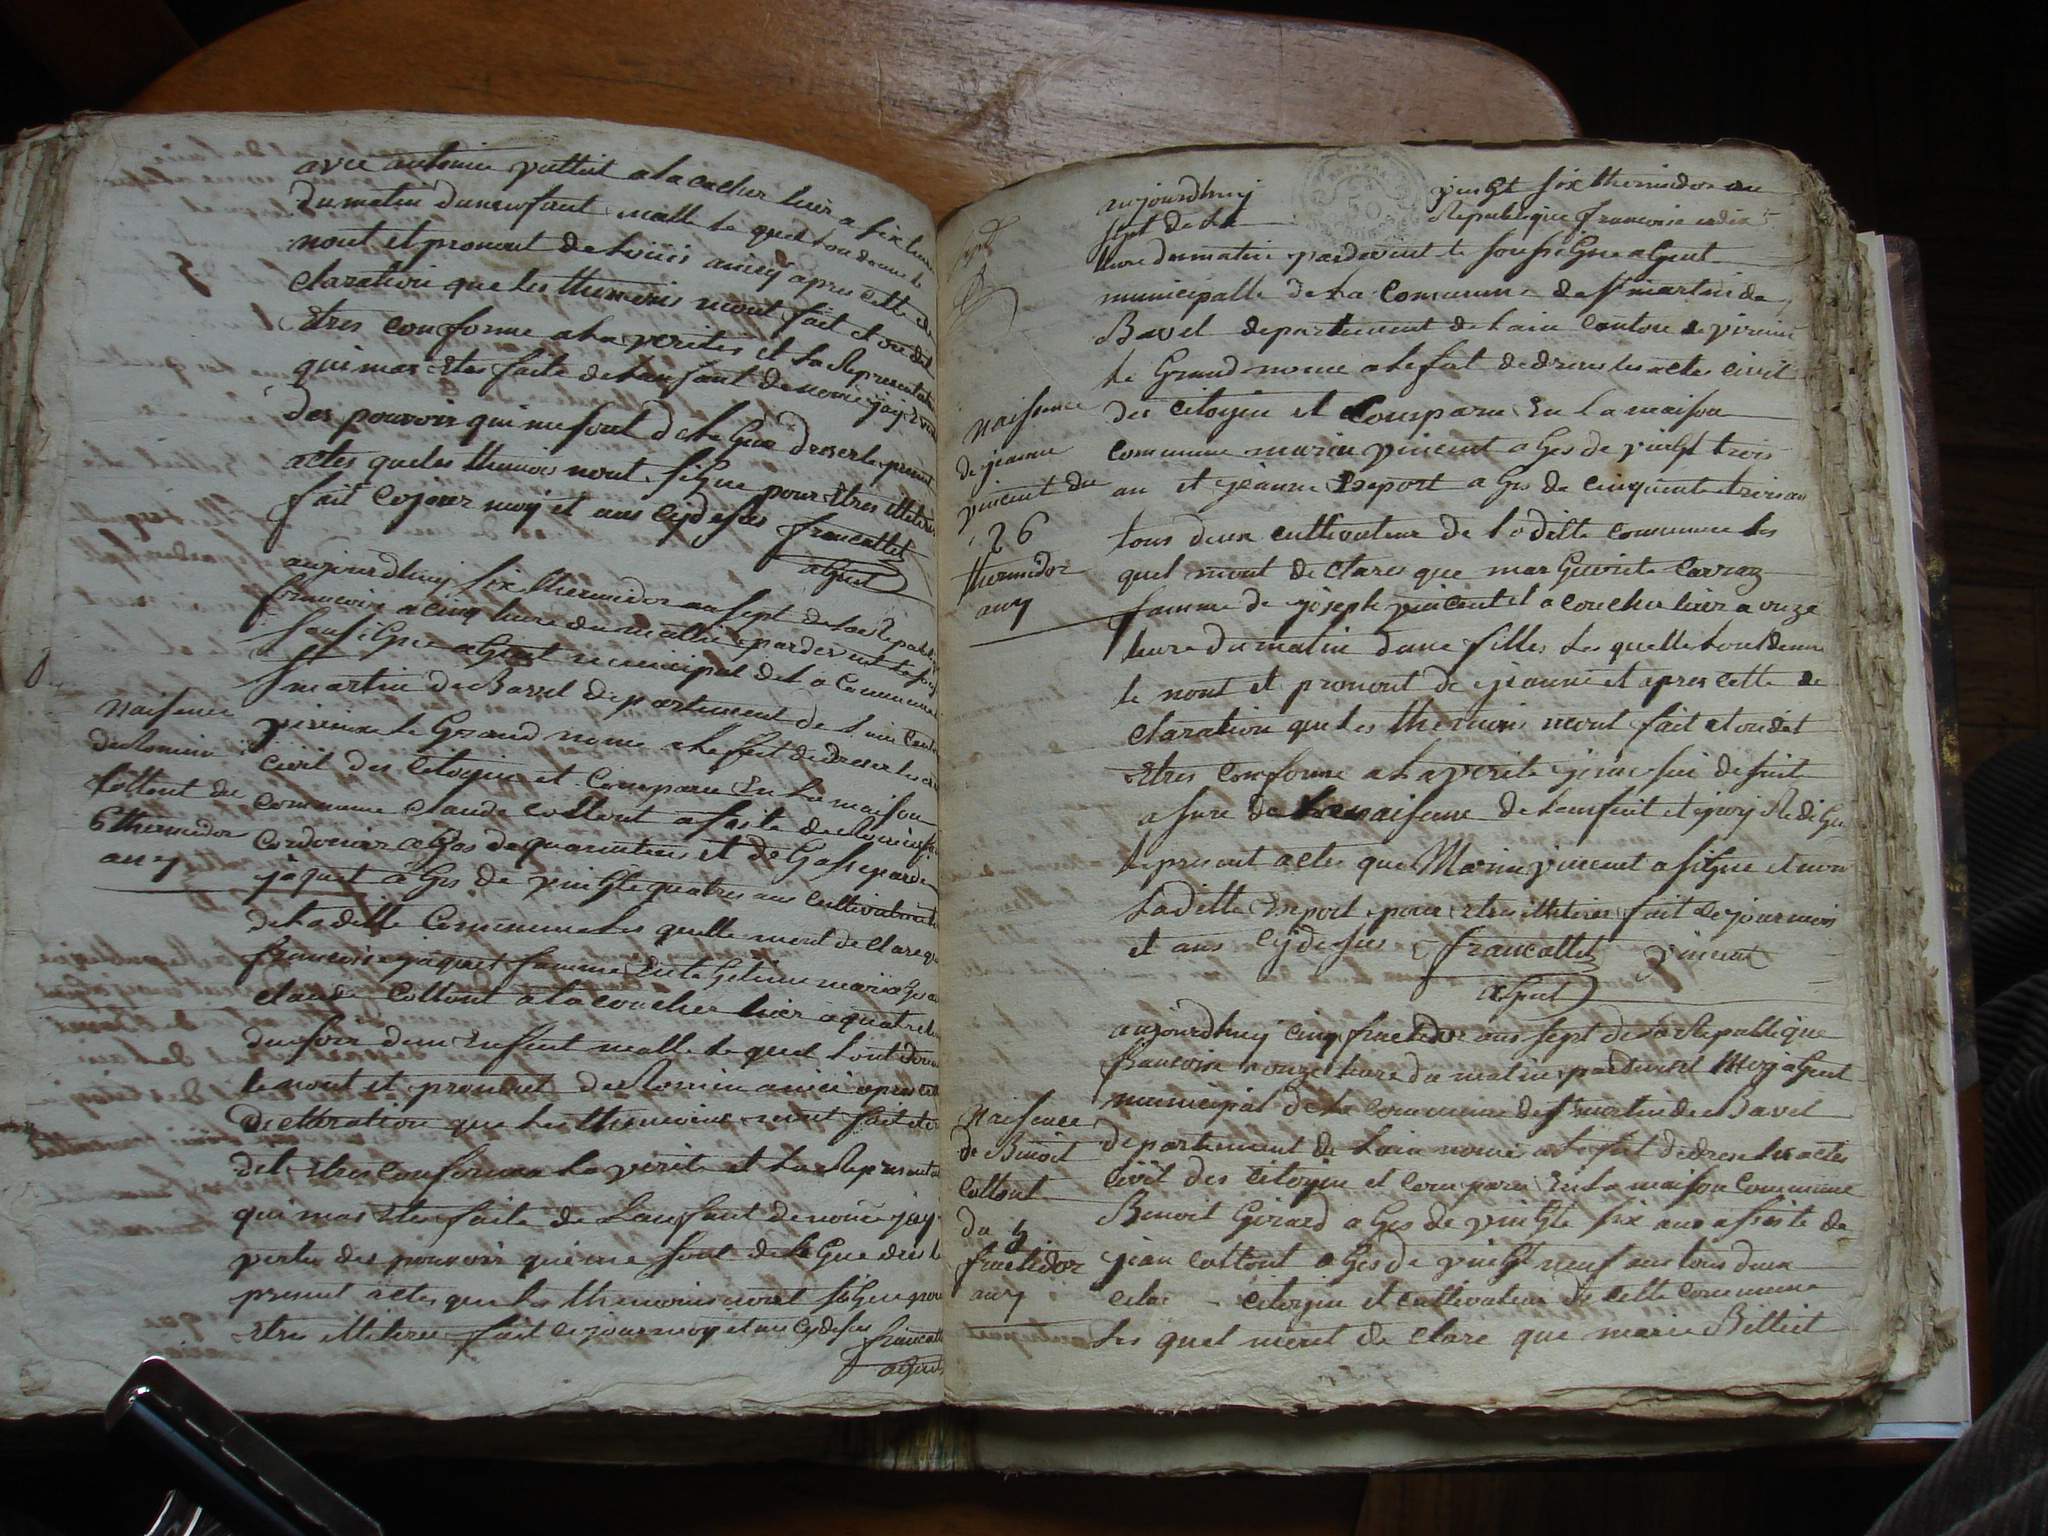 avec antoinie puttiet a la coucher hier a six heure
du matin dun enfant malle le quel lon donne le
nont et pronont de Louis aincy apres cette de
claration que les themoins mont fait et ou dit
Etres conforme a la verites et la Representation
qui mas Etes faite de lanfant denomé jay En vertu
des pouvoir qui me sont deleGue dreser le present
actes que les themoins nont siGne pour Etres illiteres
fait ce jour moy et ans cy desus francallet
aGent
aujourdhuy six thermidor an sept de la Republique
francoise a cinq heure du matin pardevant le
sousiGne aGent municipal de la Commune
St martin de Bavel departement de lain canton
virieux le Grand nomé a lefet de dreser les actes
civil des citoyin et comparu En la maison
commune claude cottont asiste de
cordonier aGes de quarante et de Gasparde
jaquet aGes de vinGt quatres ans cultivateur
de ladille Commune les quelle mont declare que
francoise jaquet famme En leGetime mariaGe
claude Cottont a la coucher hier a quatre heure
du soir dun Enfent malle le quel lont donne
le nont et pronont de Romin ainci apres cette
declaration que les themoins mont fait et ou
dit Etres conforme a la verite et la Representation
qui mas Ete faite de lanfant denomé jay
vertu des pouvoir qui me sont deleGue dresé le
present actes que les themoins nont siGne pour
Etres illiteres fait ce jour moy et ans cy desus francallet
aGent
Naisence
de Romin
Cottont du
6 thermidor
an 7
aujourdhuy vinGt six thermidor an
sept de la Republique francoise a dix
heure du matin pardevant le sousiGne aGent
municipalle de la Commune de St martin de
Bavel departement de lain Canton de virieux
le Grand nomé a lefet de dreser les actes civil
des citoyin et Comparu En la maison
commune marin vincent aGes de vinGt trois
an et jeanne Exeport aGes de cinquente trois an
tous deux cultivateur de ladille commune les
quel mont declares que marGuerite Carraz
famme de joseph vincent et a coucher hier a onze
heure du matin dune filles les quelle lont donne
le nont et pronont de jeanne et apres cette de
claration que les themoins mont fait et ou dit
Etres conforme a la verite je me sui de suite
asure de la naisence de lenfent et jay RediGe
le present actes que Marin vincent a siGne et non
ladille Exeport pour Etres illiteres fait ce jour mois
et ans cy desus francallet vincent
aGent
Naisence
de jeanne
vincent du
26
thermidor
an 7
aujourdhuy cinq fructidor ans sept de la Republique
francoise a onze heure du matin pardevant Moy aGent
municipal de la commune de St martin de Bavel
departement de lain nomé a lefet de dreser les actes
civil des citoyin et comparu En la maison commune
Benoit Girard aGes de vinGte six ans asiste de
jean cottont aGes de vinGt neuf ans tous deux
citoyin et cultivateur de cette commune
les quel mont declare que marie Billiet
Naisence
de Benoit
Cottont
du 5
fructidor
an 7